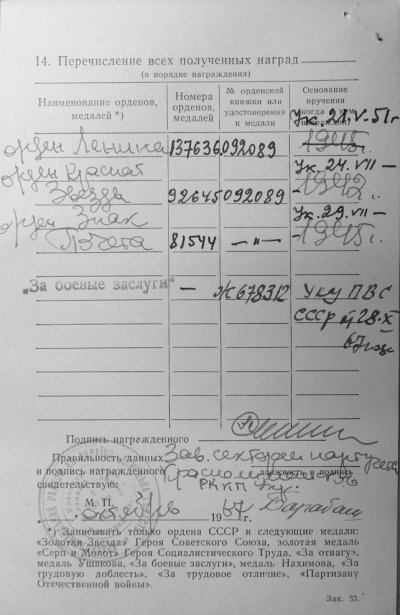 14. Перечисление всех полученных наград
(в порядке награждения)
Наименование орденов, медалей *)
Номера орденов, медалей
№ орденской книжки или удостоверения к медали
Основание вручения (когда и кем награжден)
Ук. 21.V.51г
орден Ленина 137636 092089 1945г.
орден Красной Ук. 24.VII—
Звезды 92645 092089 1942г.
орден Знак Ук. 29.VII—
Почета 81544 —"— 1945г.
„За боевые заслуги" — Ж678312 Указ ПВС
СССР от 28.X
67 года
Подпись награжденного
Правильность данных Зав. сектором
и подпись награжденного должность и подпись
свидетельствую:
М. П. 31
октября 1967г. Барабаш
*) Записывать только ордена СССР и следующие медали:
„Золотая Звезда" Героя Советского Союза, золотая медаль
„Серп и Молот" Героя Социалистического Труда, „За отвагу",
медаль Ушакова, „За боевые заслуги", медаль Нахимова, „За
трудовую доблесть", „За трудовое отличие", „Партизану
Отечественной войны".
Зак. 33.